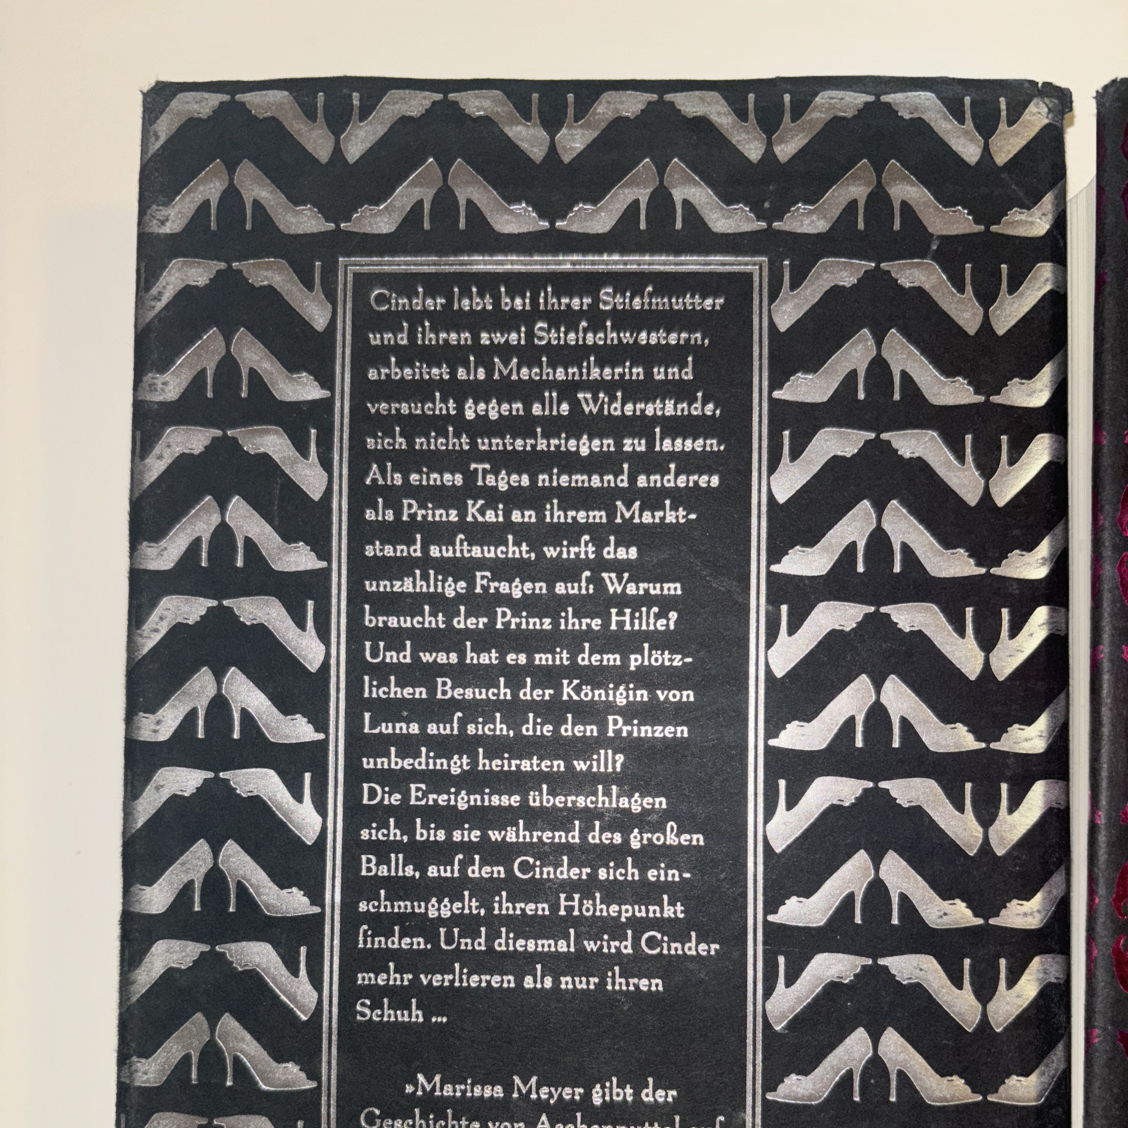 Cinder lebt bei ihrer Stiefmutter
und ihren zwei Stiefschwestern,
arbeitet als Mechanikerin und
versucht gegen alle Widerstände,
sich nicht unterkriegen zu lassen.
Als eines Tages niemand anderes
als Prinz Kai an ihrem Markt-
stand auftaucht, wirft das
unzählige Fragen auf: Warum
braucht der Prinz ihre Hilfe?
Und was hat es mit dem plötz-
lichen Besuch der Königin von
Luna auf sich, die den Prinzen
unbedingt heiraten will?
Die Ereignisse überschlagen
sich, bis sie während des großen
Balls, auf den Cinder sich ein-
schmuggelt, ihren Höhepunkt
finden. Und diesmal wird Cinder
mehr verlieren als nur ihren
Schuh ...
»Marissa Meyer gibt der
Geschichte von Aschenputtel auf